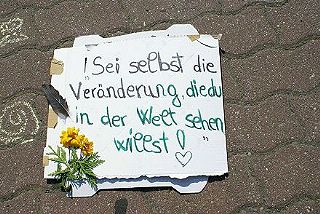 ! Sei selbst die
Veränderung, die du
in der Welt sehen
willst!